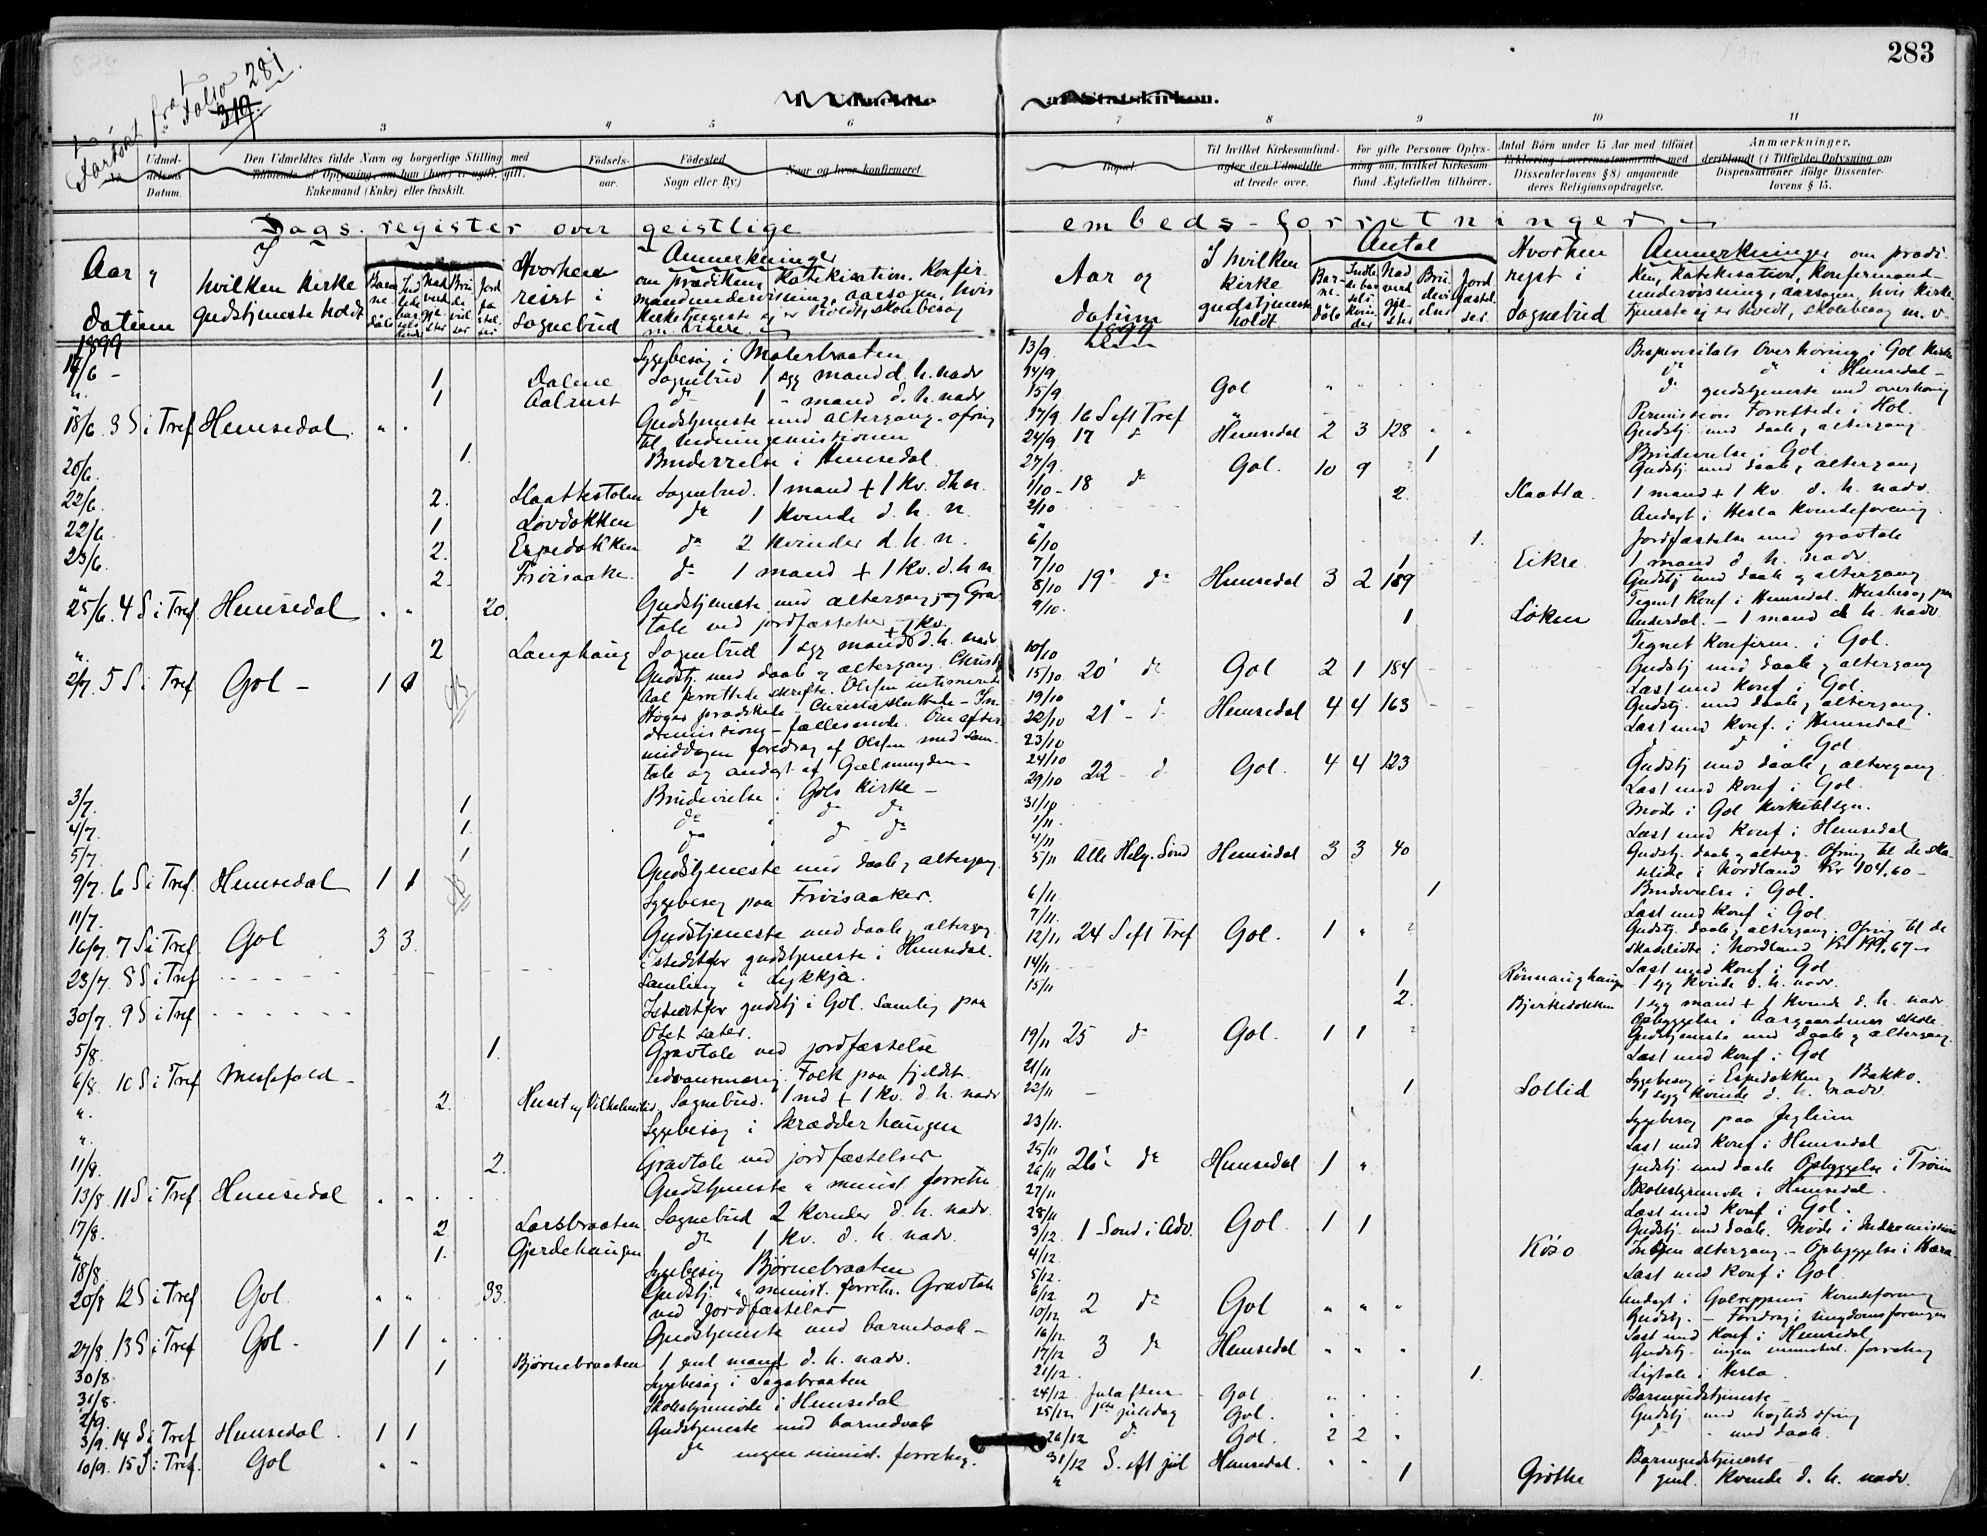 283
Fortsat fra Folio 281.
319.
Udmeldte
af Statskirken.
3 4 5 6
7 8 9 10 11
Udmel-
delsens
Datum.
Den Udmeldtes fulde Navn og borgerlige Stilling med
Tilføiende af Oplysning, om han (hun) er ugift, gift,
Enkemand (Enke) eller fraskilt.
Fødsels-
aar.
Fødested
(Sogn eller By.)
Naar og hvor konfirmeret.
Bopæl.
Til hvilket Kirkesamfund-
agter den Udmeldte
at træde over.
For gifte Personer Oplys-
ning om, hvilket Kirkesam
fund Ægtefællen tilhører.
Antal Børn under 15 Aar med tilføiet
Erklæring (overensstemmende med
Dissenterlovens § 8) angaaende
deres Religionsopdragelse.
Anmærkninger,
deriblandt (i Tilfælde) Oplysning om
Dispensationer ifølge Dissenter-
lovens § 15.
Dagsregister over geistlige
embeds-forretninger
Aar og datum
I hvilken kirke gudstjeneste holdt
Hvorhen reist i Sognebud
Anmerkninger
om prædiken, Katekisation, Konfir-
mandundervisning, aarsagen, hvis
Kirketjeneste ej er holdt, skolebesøg
m. videre
1899
17/6 - Sygebesøg i Moterbraaten
1 Dalene Sognebud 1 syg mand d. h. nadv
1 Aalrust do 1 - mand d. h. nadv
18/6 3 S i Tref Hemsedal Gudstjeneste med altergang - ofring
til hedningemissionen
20/6. 1. Brudevielse i Hemsedal
22/6. 2. Slaattestolen Sognebud. 1 mand + 1 kv. d h n.
22/6. 1 Løvdokken do 1 kvinde d. h. n
23/6. 2. Espedokken do 2 kvinder d. h. n.
" 2. Frøisaake do 1 mand + 1 kv. d. h n
25/6. 4 S i Tref Hemsedal 20. Gudstjeneste med altergang og Grav-
tale ved jordfæstelse
" 2 Langhaug Sognebud 1 syg mand + 1 kv. d. h. nadv
2/7. 5 S i Tref Gol - 1 1 Gudstj. med daab og altergang. Christie
Aal forrettede skrifte. Olsen intimerede
Høyer prædikede - Christie sluttede - In-
dremissions-fællesmøde. Om efter-
middagen foredrag af Olsen med sam-
tale og andagt af Gjelmunden
3/7. 1 Brudevielse i Gols Kirke -
4/7. 1. do do do
5/7. 1 do do do
9/7. 6 S i Tref. Hemsedal 1 1 Gudstjeneste med daab og altergang.
11/7. Sygebesøg paa Frøisaaker.
16/7 7 S i Tref. Gol 3 3. Gudstjeneste med daab og altergang
istedetfor gudstjeneste i Hemsedal.
23/7. 8 S i Tref - - - - Samling i Lykkja.
30/7. 9 S i Tref - - - - Istedetfor gudstj i Gol. Samling paa
Obet sæter.
5/8. 1. Gravtale ved jordfæstelse
6/8. 10 S i Tref Messefald - Sedvansmæssig. Folk paa fjeldet.
" 2. Huset og Vilhelmslid. Sognebud. 1 md + 1 kv. d. h. nadv
" Sygebesøg i Skrædderhaugen
11/8. 2. Gravtale ved jordfæstelser
13/8. 11 S i Tref Hemsedal Gudstjeneste " minist. forretn.
17/8. 2 Larsbraaten Sognebud 2 kvinder d. h. nadv.
" 1. Gjerdehaugen do 1 kv. d. h. nadv.
18/8. Sygebesøg Bjørnebraaten
20/8 12 S i Tref Gol. " " 33. Gudstj. " minist. forretn. Gravtale
ved jordfæstelser
27/8. 13 S i Tref Gol - 1 1 Gudstjeneste med barnedaab -
30/8. 1 Bjørnebraaten 1 gml mand d. h. nadv.
31/8. Sygebesøg i Sagabraaten
2/9. Skolestyremøde i Hemsedal
3/9. 14 S i Tref Hemsedal. 1 1 Gudstjeneste med barnedaab
10/9. 15 S i Tref. Gol " " do ingen minist. forretng.
Aar og datum
I hvilken kirke gudstjeneste holdt
Antal
Barnedåb
Brudevielser
Hvorhen rejst i Sognebud
Anmerkninger om prædi-
ken, Katekisation, Konfirmand-
undervisning, aarsagen, hvis kirke-
tjeneste ej er holdt, skolebesøg m. v.
1899
13/9. Bispevisitats Overhøring i Gol Kirke
14/9. do do i Hemsedal -
15/9. Gol do gudstjeneste med overhøring
17/9 16 S eft Tref " Permission Forrettede i Hol.
24/9 17 do Hemsedal 2 3 128 Gudstj med daab og altergang
27/9. 1 Brudevielse i Gol.
1/10 - 18 do Gol. 10 9 Gudstj med daab og altergang
2/10 2. Slaatta. 1 mand + 1 kv d. h. nadv.
" Andagt i Hesla Kvindeforening
6/10 1. Jordfæstelse med gravtale
7/10 1 Eikre 1 mand d. h. nadv.
8/10 19 do Hemsedal 3 2 189 Gudstj med daab og altergang
9/10. Tegnet konf i Hemsedal. Husbesøg paa
1 Løken Underdal. - 1 mand d. h. nadv.
10/10 Tegnet konfirm. i Gol.
15/10 20 do Gol 2 1 184 Gudstj med daab og altergang
19/10 Læst med konf i Gol.
22/10 21 - do Hemsedal 4 4 163 Gudstj. med daab og altergang.
23/10 Læst med konf. i Hemsedal
24/10 do do i Gol
29/10 22 - do Gol. 4 4 123 Gudstj med daab, altergang.
31/10 Læst med konf i Gol.
1/11 Møde i Gol kirketilsyn.
4/11 Læst med konf i Hemsedal
5/11 Alle Helg. Sønd Hemsedal 3 3 40 Gudstj. daab og alterg. Ofring til de ska-
delidte i Nordland Kr 104.60 -
6/11 1 Brudevielse i Gol.
7/11. Læst med konf i Gol.
12/11 24 S eft Tref Gol. 1 " Gudstj. daab, altergang. Ofring til de
skadelidte i Nordland Kr 199.67 -
14/11 Læst med konf i Gol
15/11 1 Rønnaughaugen 1 syg kvinde d. h. nadv.
2. Bjerkedokken 1 syg mand + 1 kvinde d. h. nadv.
Opbyggelse i Aasgaardenes skole
19/11 25 do Gol. 1 1 Gudstjeneste med daab og altergang.
21/11 Læst med konf i Gol
22/11 - Sygebesøg i Espedokken og Bakko.
1 Sollid 1 syg kvinde d. h. nadv.
23/11. Sygebesøg paa Jegleim
25/11 Læst med konf i Hemsedal
26/11 26 do Hemsedal 1 " gudstj med daab Opbyggelse i Trøim
27/11 Skolestyremøde i Hemsedal.
28/11 Læst med konf i Gol.
3/12. 1 Sønd i Adv. Gol 1 1 Gudstj med daab. Møde i Indremissionen
4/12. Køso Ingen altergang - Opbyggelse i Hæra
5/12. Læst med konf i Gol
6/12 Andagt i Golreppens kvindeforening
10/12 2 do Gol " " " Gudstj. - Foredrag i ungdomsforeningen
16/12. Læst med konf i Hemsedal
17/12 3 do Hemsedal " " " Gudstj - ingen ministerl. forretng
21/12 1. Ligtale i Hesla.
24/12 Juleaften - Gol. Barnegudstjeneste -
25/12 1ste juledag Gol. Gudstj med høitids ofring
26/12 do Gol. 2 2 " do - med daab.
31/12 S. eft jul Hemsedal. Barnegudstjeneste
" 1 Grøthe 1 gml. kvinde d. h. nadv.